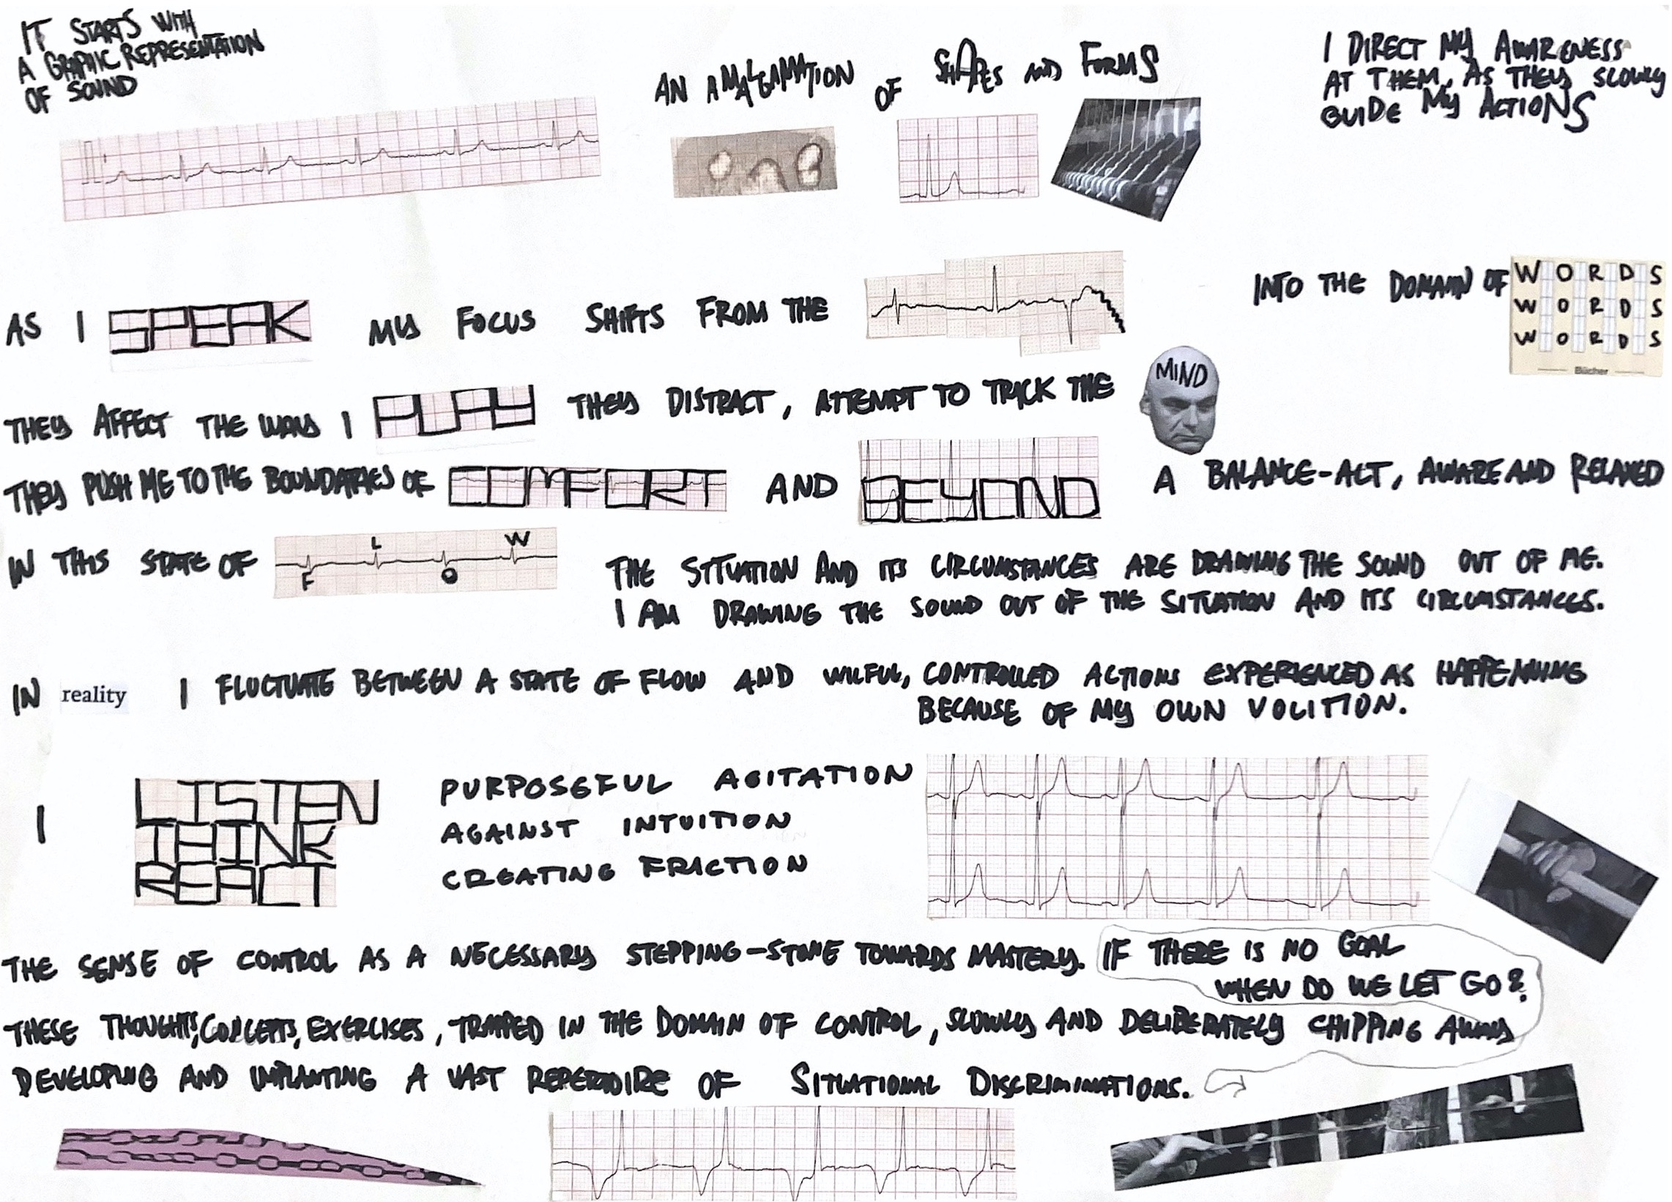 IT STARTS WITH
A GRAPHIC REPRESENTATION
OF SOUND
AN AMALGAMATION OF SHAPES AND FORMS
I DIRECT MY AWARENESS
AT THEM, AS THEY SLOWLY
GUIDE MY ACTIONS
AS I SPEAK MY FOCUS SHIFTS FROM THE INTO THE DOMAIN OF WORDS
WORDS
WORDS
Bücher
THEY AFFECT THE WAY I PLAY THEY DISTRACT, ATTEMPT TO TRICK THE MIND
THEY PUSH ME TO THE BOUNDARIES OF COMFORT AND BEYOND A BALANCE-ACT, AWARE AND RELAXED
IN THIS STATE OF FLOW
THE SITUATION AND ITS CIRCUMSTANCES ARE DRAWING THE SOUND OUT OF ME.
I AM DRAWING THE SOUND OUT OF THE SITUATION AND ITS CIRCUMSTANCES.
IN reality I FLUCTUATE BETWEEN A STATE OF FLOW AND WILFUL, CONTROLLED ACTIONS EXPERIENCED AS HAPPENING
BECAUSE OF MY OWN VOLITION.
I LISTEN
THINK
REACT
PURPOSEFUL AGITATION
AGAINST INTUITION
CREATING FRICTION
THE SENSE OF CONTROL AS A NECESSARY STEPPING-STONE TOWARDS MASTERY. IF THERE IS NO GOAL
WHEN DO WE LET GO?
THESE THOUGHTS, CONCEPTS, EXERCISES, TRAPPED IN THE DOMAIN OF CONTROL, SLOWLY AND DELIBERATELY CHIPPING AWAY
DEVELOPING AND IMPLANTING A VAST REPERTOIRE OF SITUATIONAL DISCRIMINATIONS.